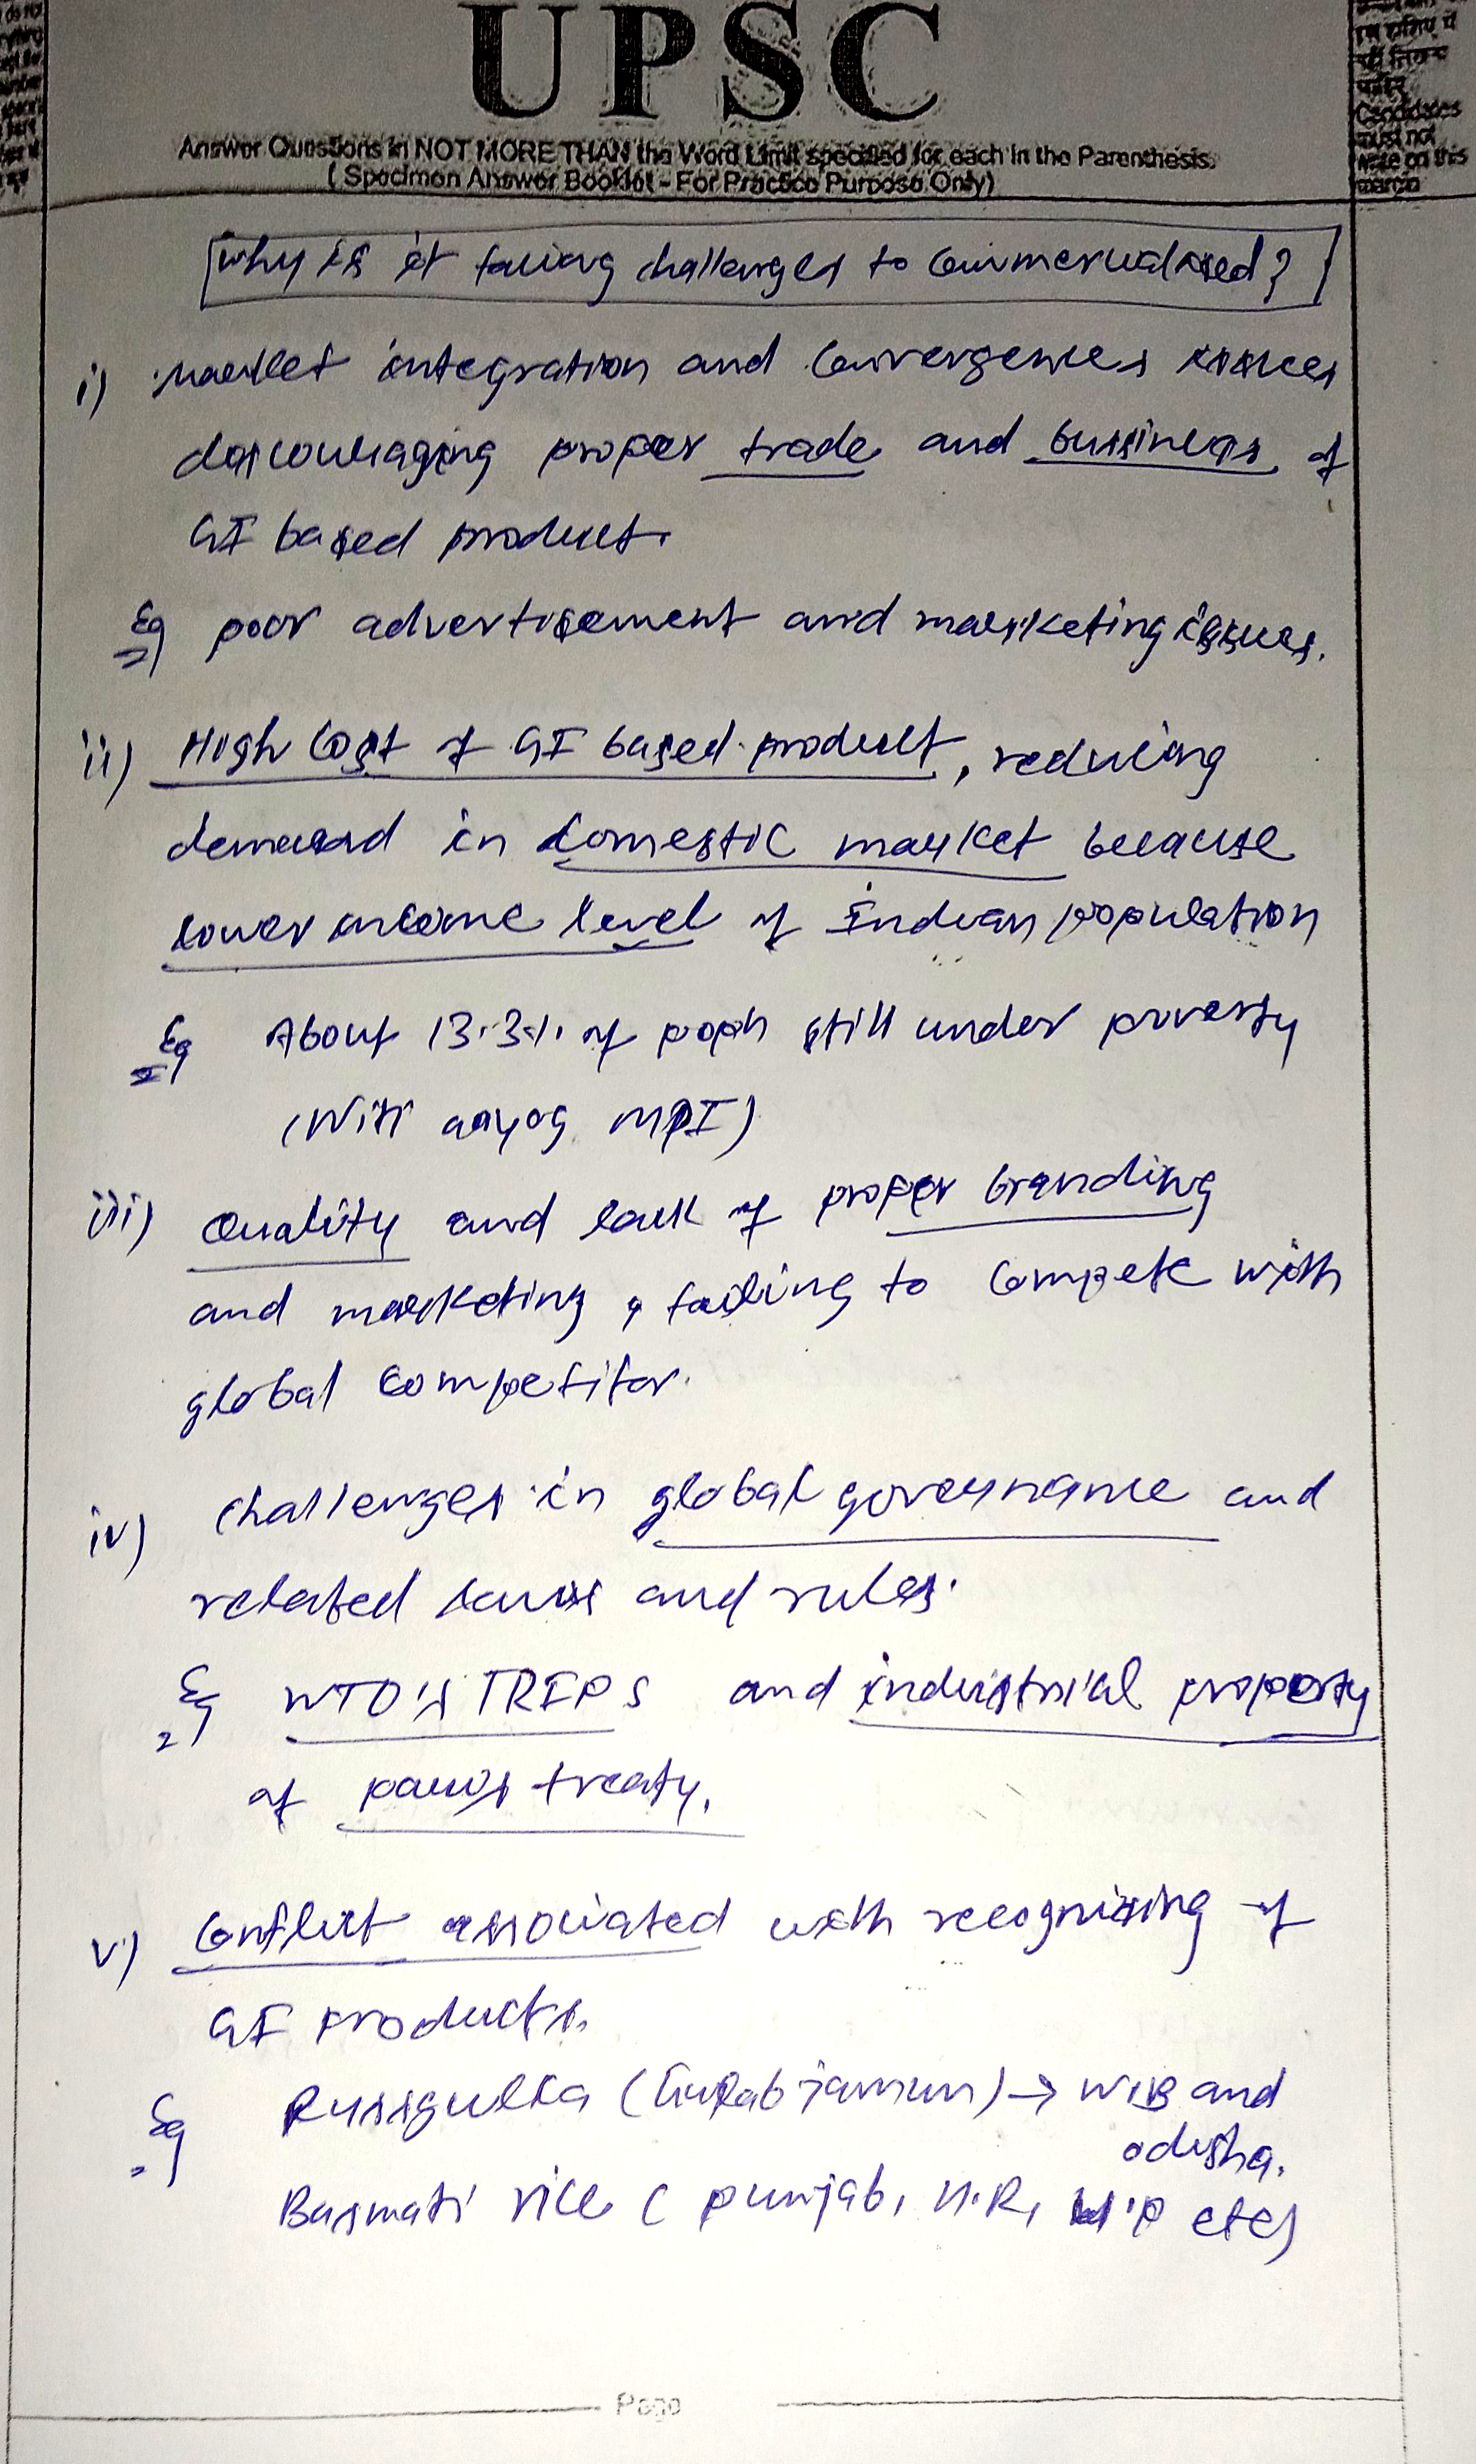 UPSC
Answer Questions in NOT MORE THAN the Word Limit specified for each in the Parenthesis.
(Specimen Answer Booklet - For Practice Purpose Only)
Candidates
must not
write on this
margin
Why is it facing challenges to commercialised?
i) Market integration and convergences issues
discouraging proper trade and bussiness of
GI based product.
Eg poor advertisement and marketing issues.
ii) High cost of GI based product, reducing
demand in domestic market because
lower income level of Indian population
Eg About 13.3% of popn still under poverty
(Niti aayog MPI)
iii) Quality and lack of proper branding
and marketing, failing to compete with
global competitor.
iv) challenges in global governance and
related laws and rules.
Eg WTO's TRIPS and industrial property
of paris treaty.
v) Conflict associated with recognising of
GI products.
Eg Russgulla (Gulab jamun) → W.B and
odisha.
Basmati rice (punjab, H.R, etc)
Page